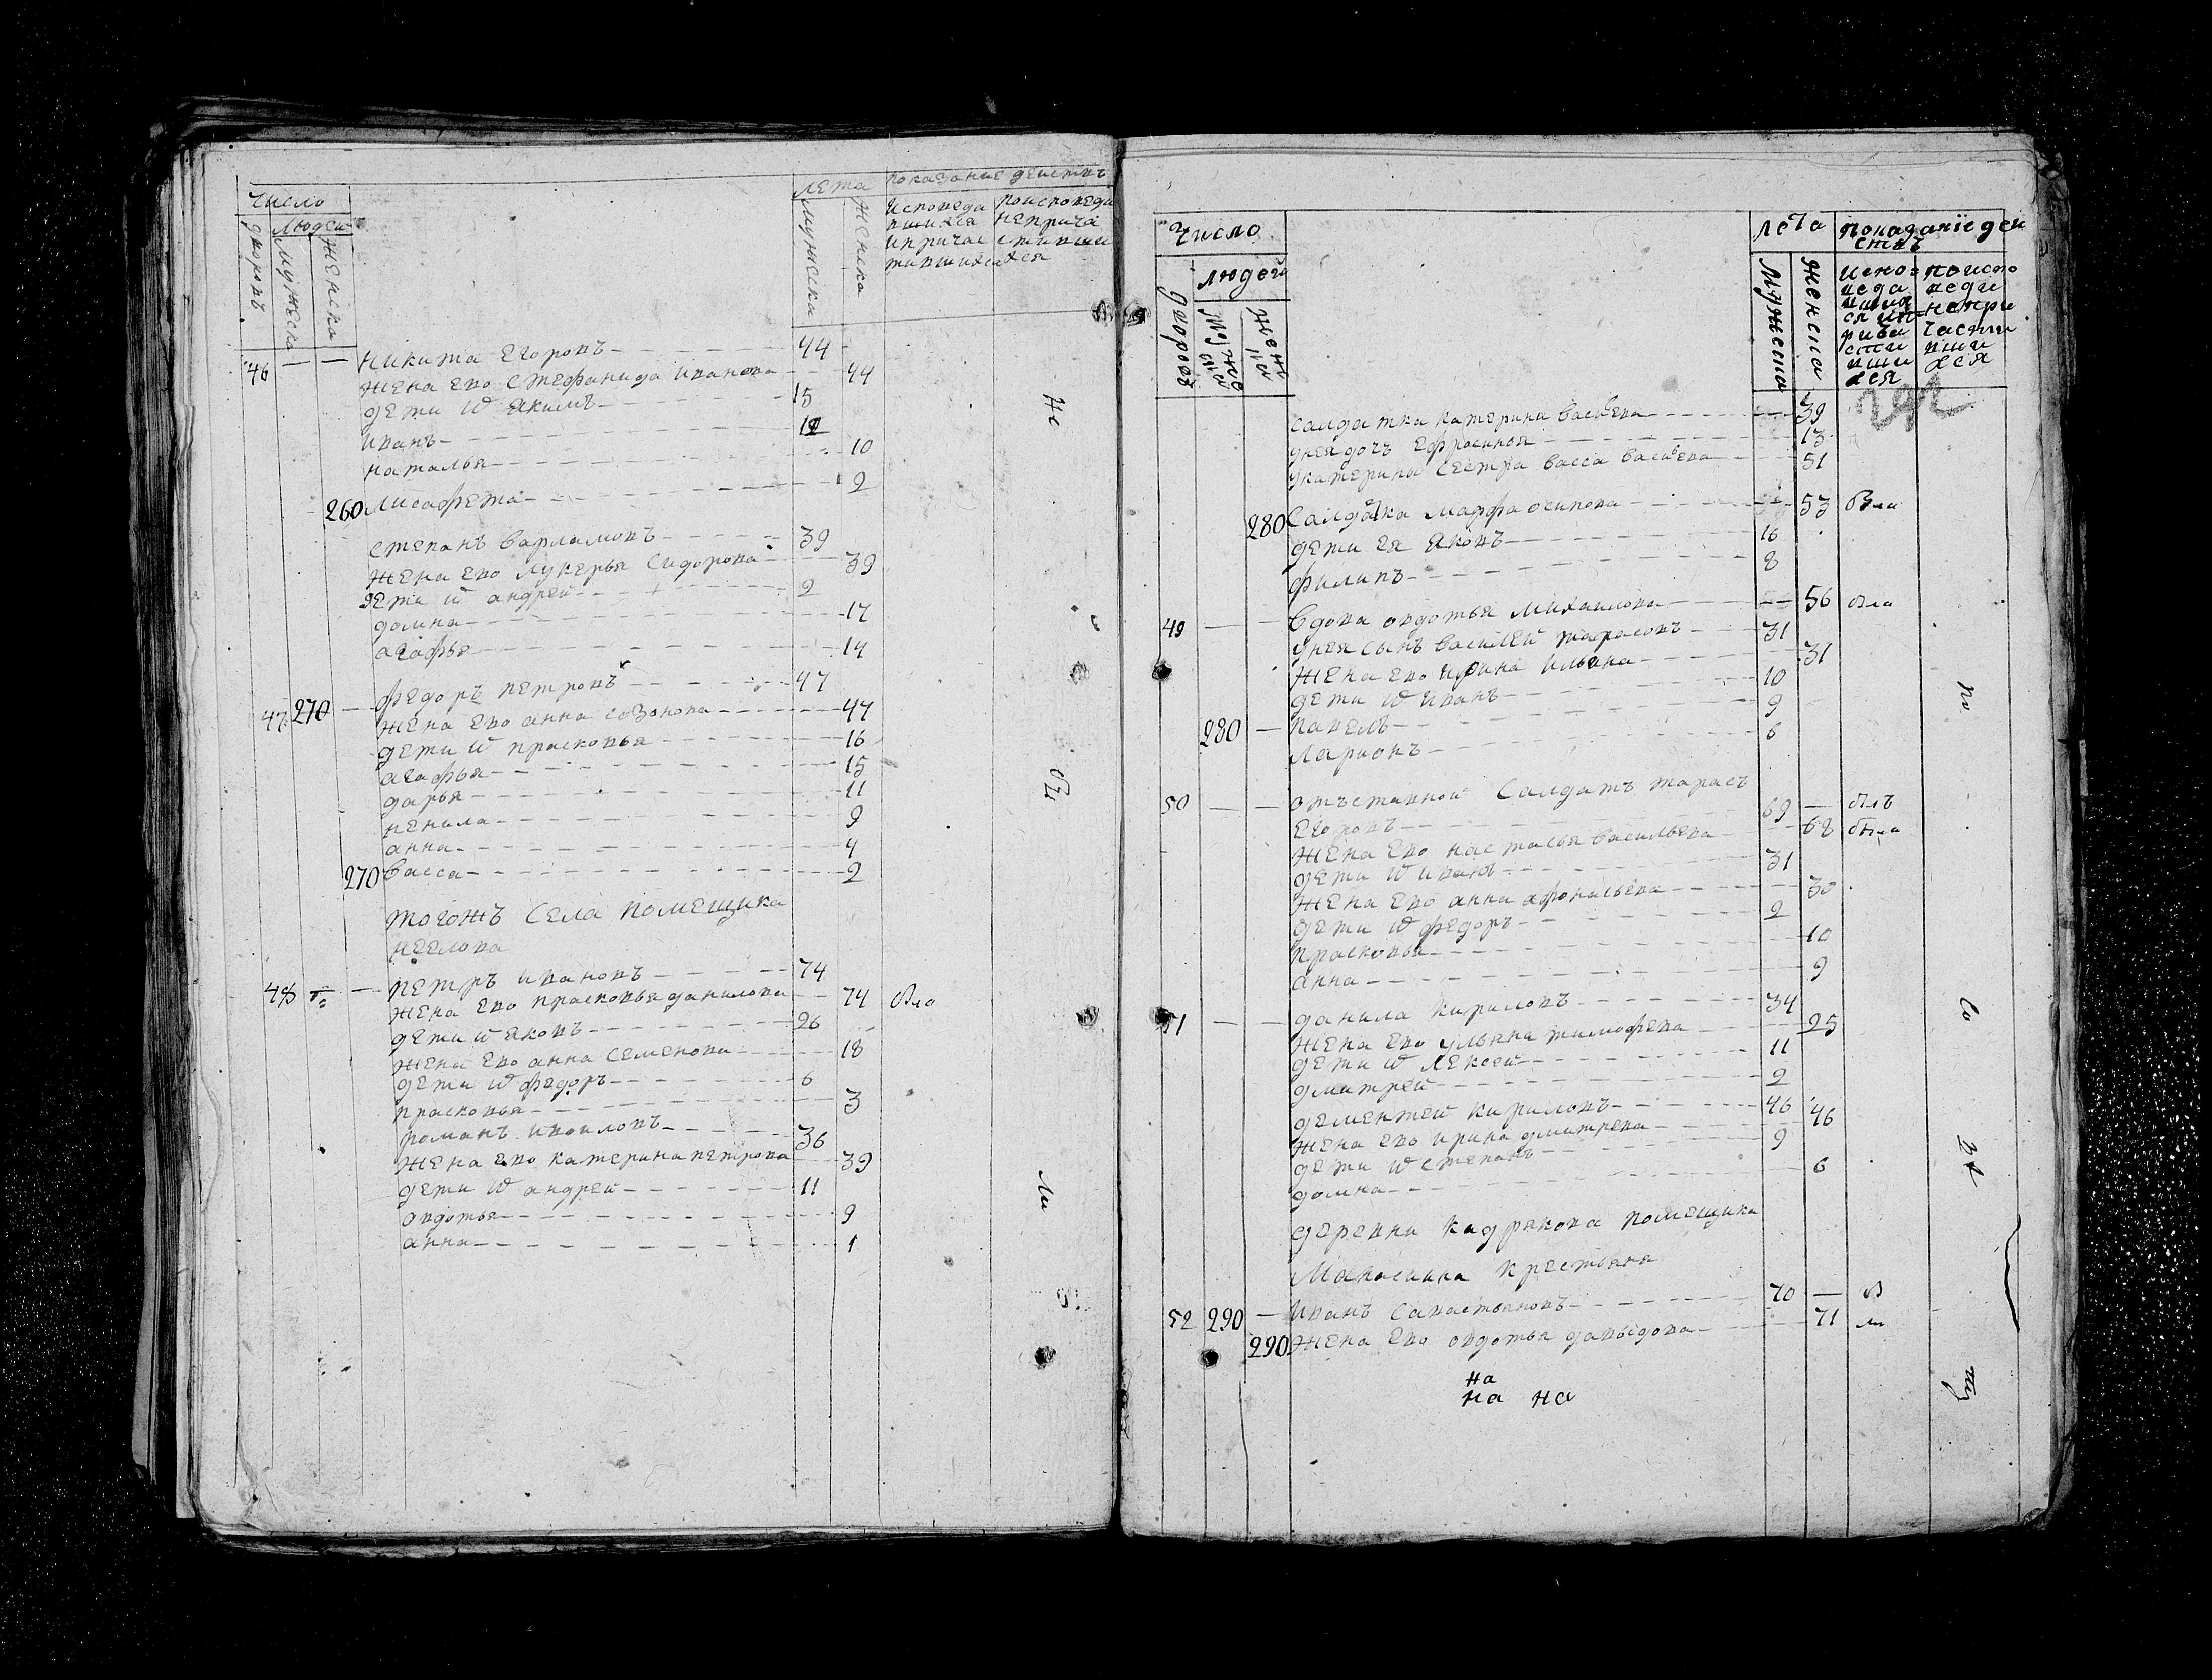 Число
людеи
дворовъ
мужеска
женска
лета
мужеска
женска
показание деиствъ
исповеда
вшихся
ипричас
тившихся
поисповеди
неприча
стивши
хся
46 — — никита егоровъ 44
жена ево стефанида иванова 44
дети ѿ якимъ 15
иванъ
наталья 10
260 лисафета 2
степанъ варламовъ 39
жена ево лукерья сидорова 39
дети ѿ андреи 2
домна 17
агафья 14
47 270 — федоръ петровъ 47
жена ево анна созонова 47
дети ѿ прасковья 16
агафья 15
дарья 11
ненила 9
анна 4
270 васса 2
тогожъ села помещика
неелова
48 — петръ ивановъ 74
жена ево прасковья данилова 74 была
дети ѿ яковъ 26
жена ево анна семенова 18
дети ѿ федоръ 6
прасковья 3
романъ 36
жена ево катерина петрова 39
дети ѿ андреи 11
овдотья 9
анна 1
Число
людеи
дворовъ
мужеска
женска
лета
показанїе деи
ствъ
испо=
веда
вших
ся ип=
рича
сти
вши
хся
поиспо
веди
непри
части
вши
хся
салдатка катерина васильева 39
унея дочь ефросинья 13
укатерины сестра васса васильева 51
280 салдатка марфа осипова 53 была
дети ея яковъ 16
филипъ 8
49 — — вдова овдотья михаилова 56 была
унея сынъ василеи тарасовъ 31
жена ево ирина ильина 31
дети ѿ иванъ 10
280 — павелъ 9
ларионъ 6
50 — — отъставнои салдатъ тарасъ
егоровъ 69 — былъ
жена ево настасья васильева 68 была
дети ѿ иванъ 31
жена ево анна афонасьева 30
дети ѿ федоръ 2
прасковья 10
анна 9
51 — — данила кириловъ 34
жена ево ульяна тимофева 25
дети ѿ лексеи 11
дмитреи 2
дементеи кириловъ 46
жена ево ирина дмитрева 46
дети ѿ степанъ 9
домна 6
деревни кадрякова помещика
крестьяня
52 290 — иванъ савастьяновъ 70 —
290 жена ево овдотья давыдова 71
на
на на